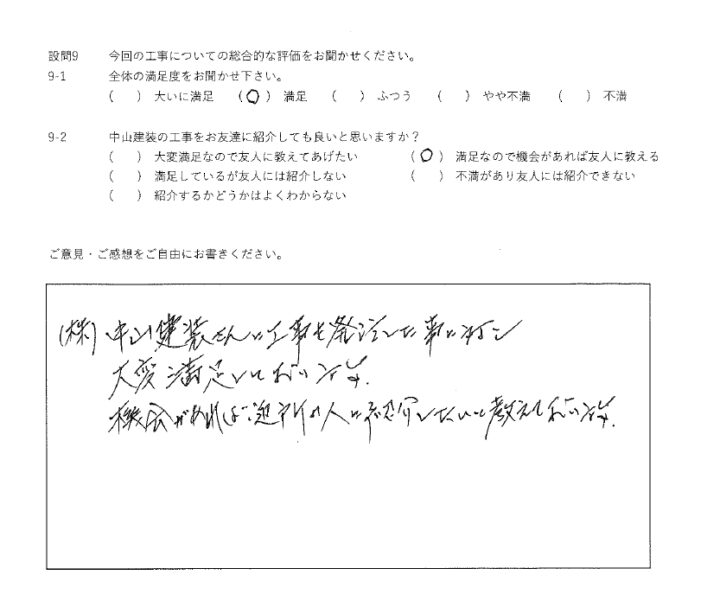 設問9 今回の工事についての総合的な評価をお聞かせください。
9-1 全体の満足度をお聞かせ下さい。
( ) 大いに満足 (○) 満足 ( ) ふつう ( ) やや不満 ( ) 不満
9-2 中山建装の工事をお友達に紹介しても良いと思いますか？
( ) 大変満足なので友人に教えてあげたい (○) 満足なので機会があれば友人に教える
( ) 満足しているが友人には紹介しない ( ) 不満があり友人には紹介できない
( ) 紹介するかどうかはよくわからない
ご意見・ご感想をご自由にお書きください。
(株)中山建装さんに工事を発注した事に対し
大変満足しております。
機会があればご近所の人に紹介したいと教えております。